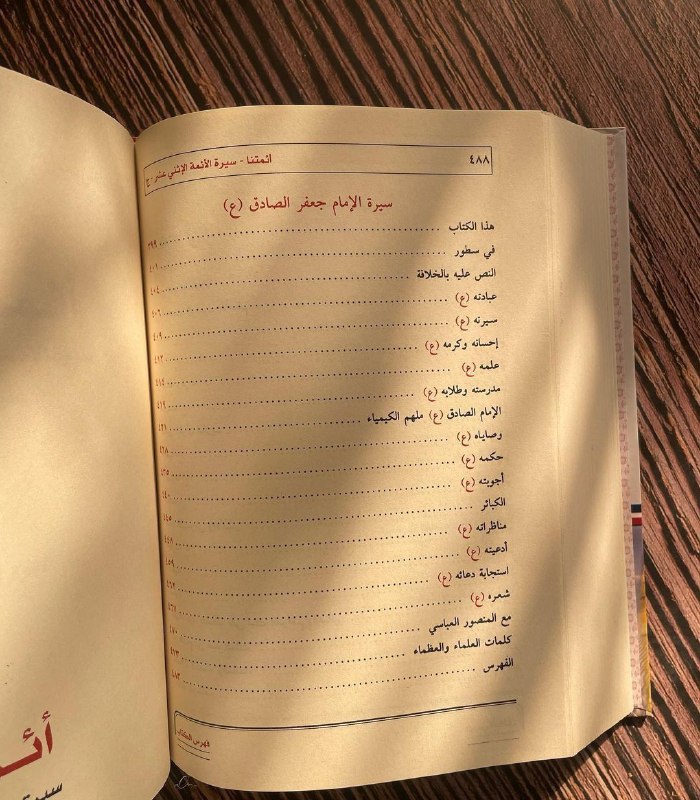 ٤٨٨ أئمتنا - سيرة الأئمة الإثني عشر - ج
سيرة الإمام جعفر الصادق (ع)
هذا الكتاب ........ ٣٩٩
في سطور ........ ٤٠١
النص عليه بالخلافة ........ ٤٠٤
عبادته (ع) ........ ٤٠٦
سيرته (ع) ........ ٤٠٩
إحسانه وكرمه (ع) ........ ٤١٢
علمه (ع) ........ ٤١٤
مدرسته وطلابه (ع) ........
الإمام الصادق (ع) ملهم الكيمياء ........ ٤٢١
وصاياه (ع) ........ ٤�٨
حكمه (ع) ........ ٤٣٥
أجوبته (ع) ........ ٤٤٠
الكبائر ........ ٤٤٥
مناظراته (ع) ........ ٤٤٨
أدعيته (ع) ........ ٤٥٩
استجابة دعائه (ع) ........
شعره (ع) ........
مع المنصور العباسي ........ ٤٧٠
كلمات العلماء والعظماء ........ ٤٧٣
الفهرس ........
فهرس الكتاب